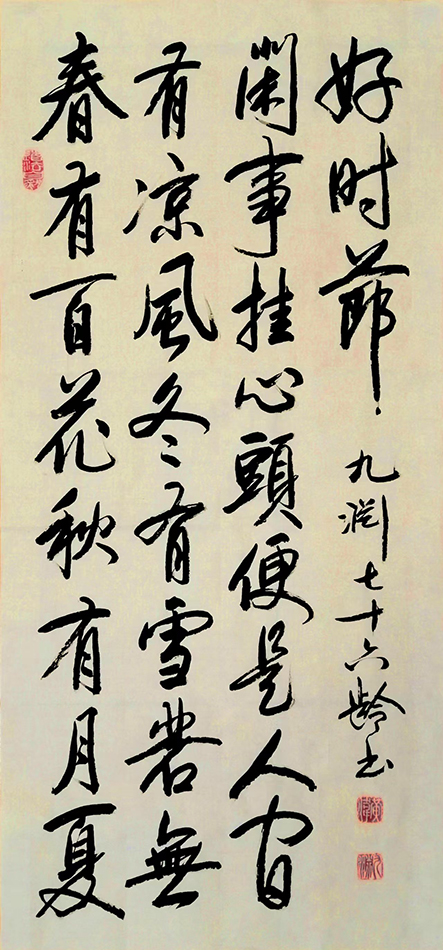 春有百花秋有月夏
有凉風冬有雪若無
閑事挂心頭便是人间
好时節 九渊七十六龄书